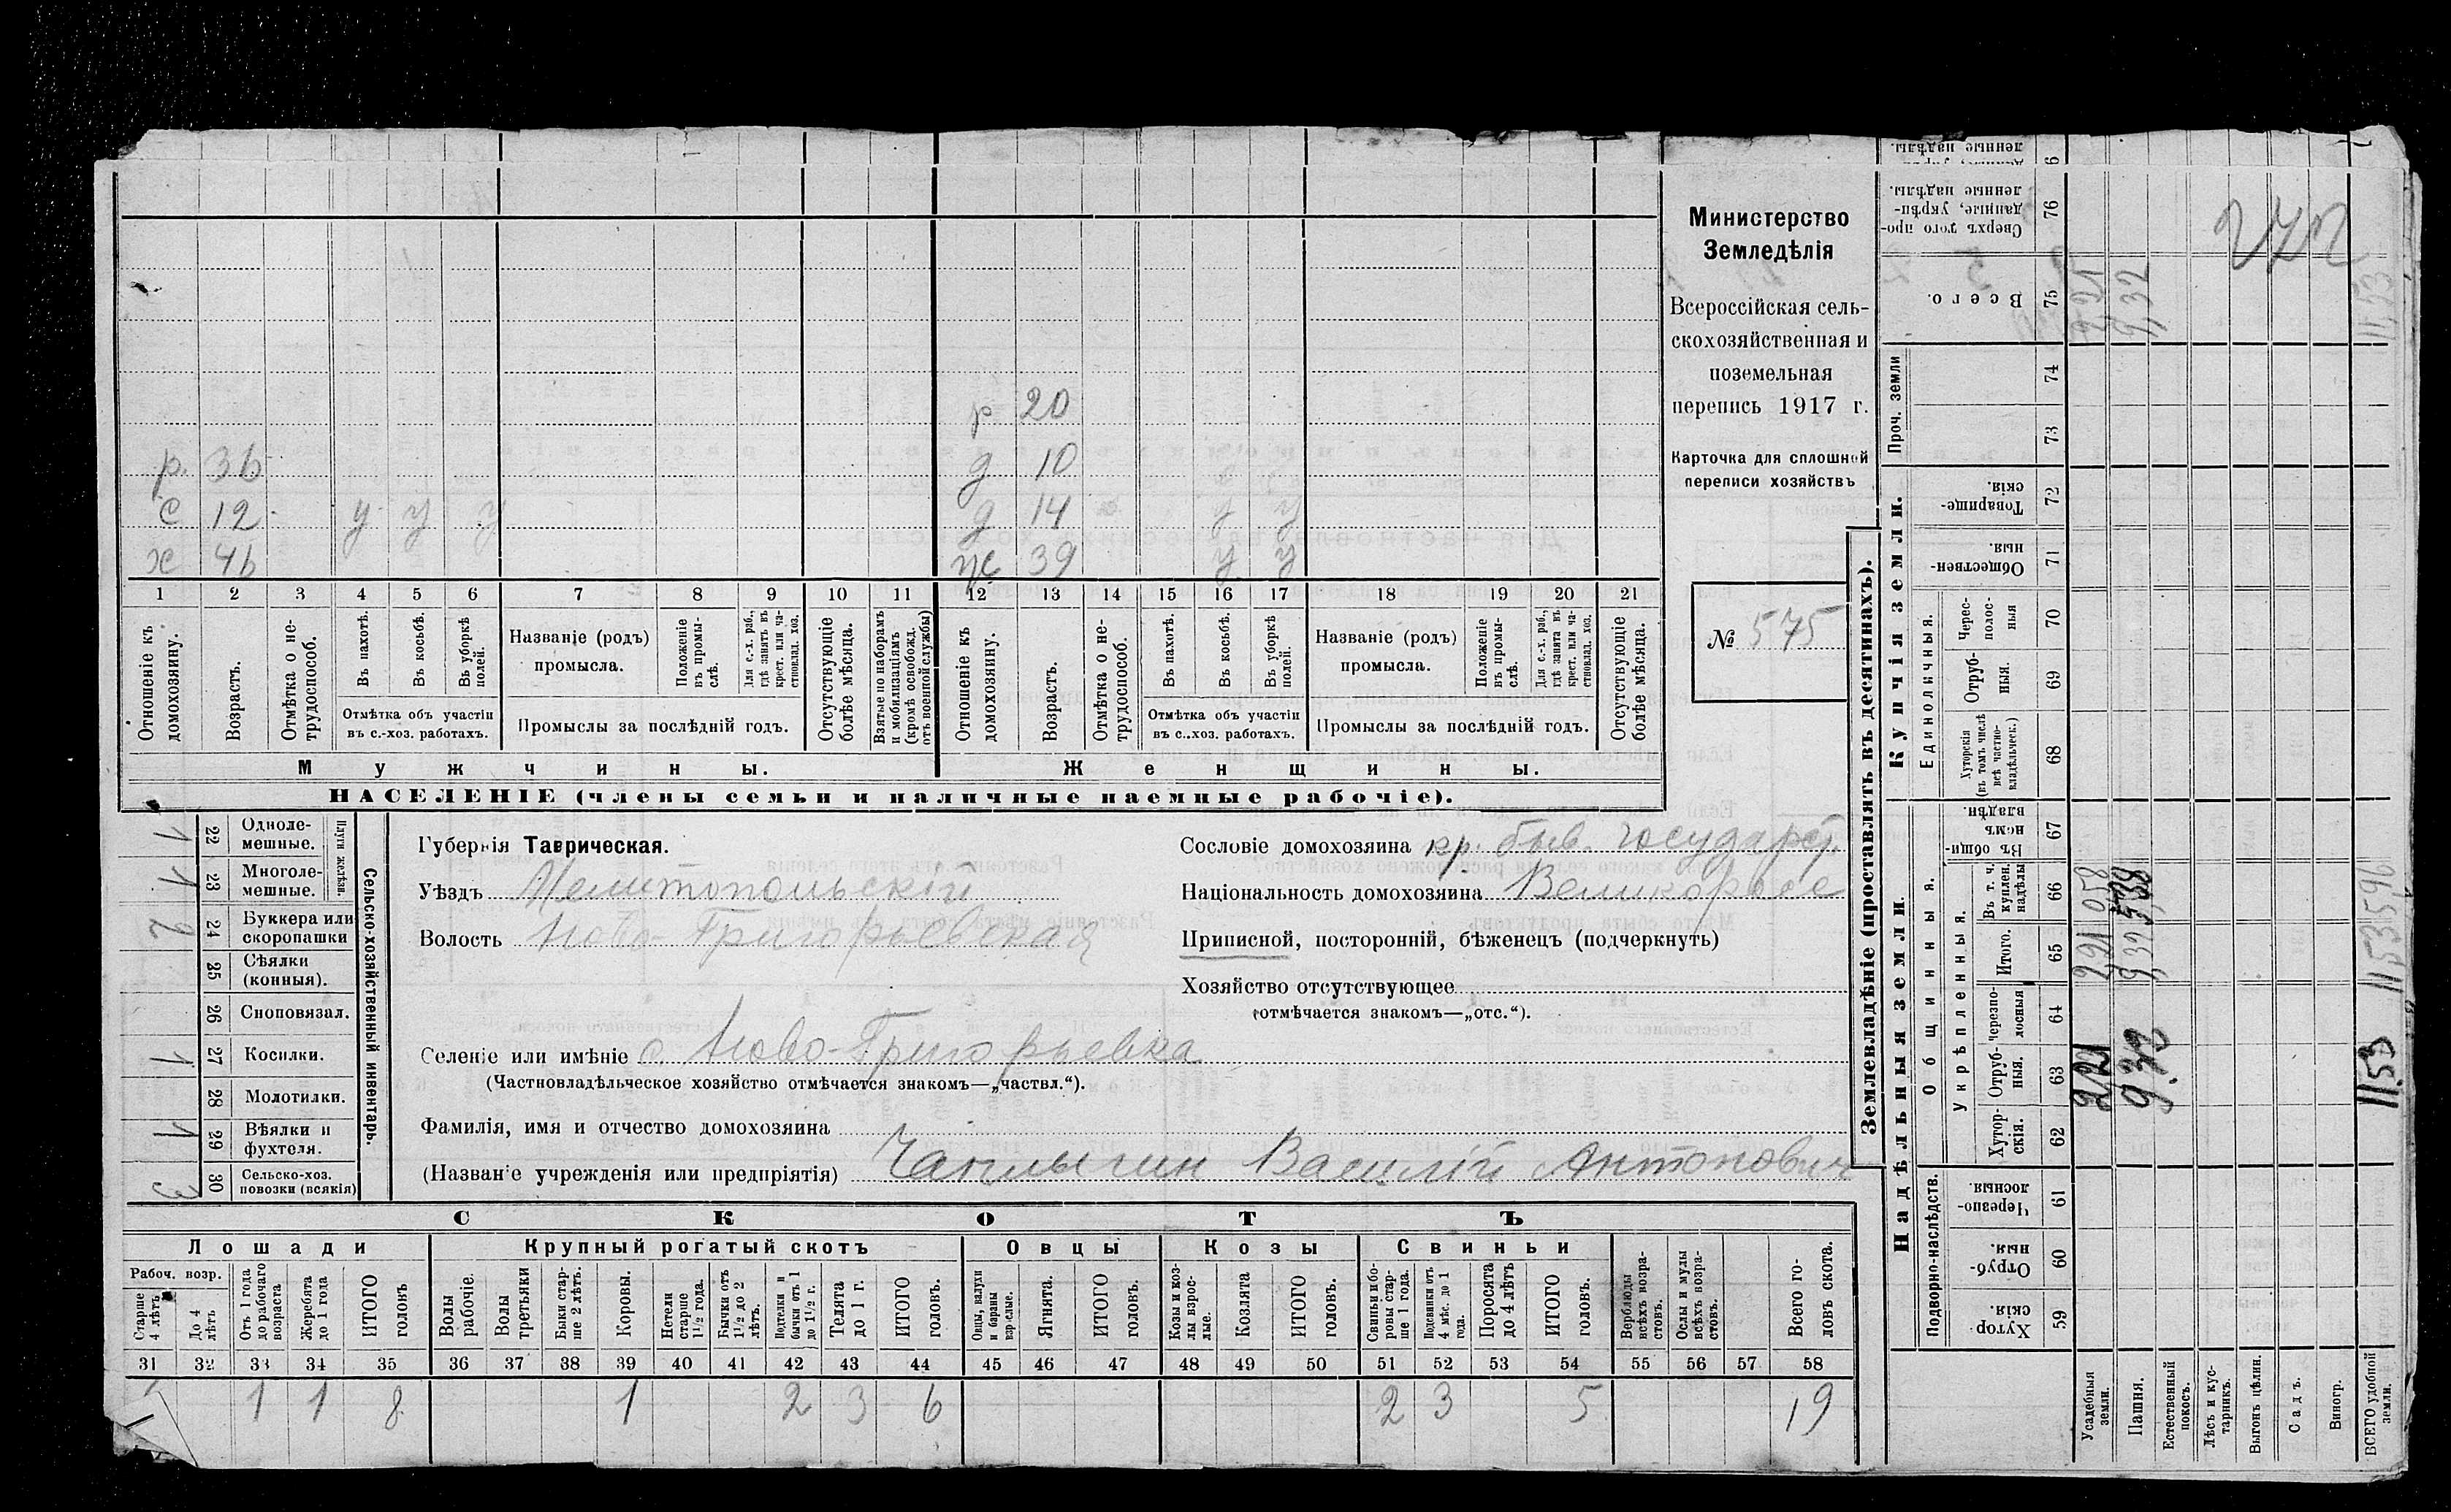 р 20
р. 36 д 10
с 12 у у у д 14 у у
х 46 ж 39 у у
1 2 3 4 5 6 7 8 9 10 11 12 13 14 15 16 17 18 19 20 21
Отношеніе къ домохозяину.
Возрастъ.
Отмѣтка о не-трудоспособ.
Въ пахотѣ.
Въ косьбѣ.
Въ уборкѣ полей.
Отмѣтка объ участіи
въ с.-хоз. работахъ.
Названіе (родъ)
промысла.
Положеніе въ промы-слѣ.
Для с.-х. раб., гдѣ занятъ въ крест. или ча-стновлад. хоз.
Промыслы за послѣдній годъ.
Отсутствующіе болѣе мѣсяца.
Взятые по наборамъ и мобилизаціямъ (кромѣ освобожд. отъ военной службы)
Отношеніе къ домохозяину.
Возрастъ.
Отмѣтка о не-трудоспособ.
Въ пахотѣ.
Въ косьбѣ.
Въ уборкѣ полей.
Отмѣтка объ участіи
въ с..хоз. работахъ.
Названіе (родъ)
промысла.
Положеніе въ промы-слѣ.
Для с.-х. раб., гдѣ занята въ крест. или ча-стновлад. хоз.
Промыслы за послѣдній годъ.
Отсутствующіе болѣе мѣсяца.
Мужчины. Женщины.
НАСЕЛЕНІЕ (члены семьи и наличные наемные рабочіе).
Министерство
Земледѣлія
Всероссійская сель-
скохозяйственная и
поземельная
перепись 1917 г.
Карточка для сплошной
переписи хозяйствъ
№ 575
Сельско-хозяйственный инвентарь.
Плуги желѣзн.
22 Однолемешные. 1
23 Многолемешные. 1
24 Буккера или скоропашки 2
25 Сѣялки (конныя).
26 Сноповязал.
27 Косилки. 1
28 Молотилки.
29 Вѣялки и фухтеля. 1
30 Сельско-хоз. повозки (всякія) 3
Губернія Таврическая.
Уѣздъ Мелитопольскій
Волость Ново-Григорьевская
Селеніе или имѣніе с. Ново-Григорьевка
(Частновладѣльческое хозяйство отмѣчается знакомъ—„частвл.“).
Фамилія, имя и отчество домохозяина
(Названіе учрежденія или предпріятія) Чаплыгин Василій Антонович
Сословіе домохозяина кр. быв. государст.
Національность домохозяина Великоросс
Приписной, посторонній, бѣженецъ (подчеркнуть)
Хозяйство отсутствующее
(отмѣчается знакомъ—„отс.“).
СКОТЪ
Лошади Крупный рогатый скотъ Овцы Козы Свиньи
Рабоч. возр.
Старше 4 лѣтъ
До 4 лѣтъ
Отъ 1 года до рабочаго возраста
Жеребята до 1 года
ИТОГО головъ
Волы рабочіе.
Волы третьяки
Быки стар-ше 2 лѣтъ.
Коровы.
Нетели старше 1½ года.
Бычки отъ 1½ до 2 лѣтъ.
Подтелки и бычки отъ 1 до 1½ г.
Телята до 1 г.
ИТОГО головъ.
Овцы, валухи и бараны взрослые.
Ягнята.
ИТОГО головъ.
Козы и коз-лы взрос-лые.
Козлята
ИТОГО головъ.
Свиньи и бо-ровы стар-ше 1 года.
Подсвинки отъ 4 мѣс. до 1 года.
Поросята до 4 лѣтъ
ИТОГО головъ.
Верблюды всѣхъ возра-стовъ.
Ослы и мулы всѣхъ возра-стовъ.
Всего го-ловъ скота.
31 32 33 34 35 36 37 38 39 40 41 42 43 44 45 46 47 48 49 50 51 52 53 54 55 56 57 58
1 1 8 1 2 3 6 2 3 5 19
Землевладѣніе (проставлять въ десятинахъ).
Надѣльныя земли. Купчія земли.
Подворно-наслѣдств.
Общинныя.
Укрѣпленныя.
Единоличныя.
Проч. земли
Хуторскія. 59
Отрубныя. 60
Черезполосныя. 61
Хуторскія. 62
Отрубныя. 63
Черезполосныя 64
Итого. 65
Въ т. ч. куплен. надѣлы 66
Въ общинномъ владѣн. 67
Хуторскія (въ томъ числѣ всѣ частно-владѣльческ.) 68
Отрубныя. 69
Черес-полос-ныя 70
Общественныя. 71
Товарищескія. 72
73
74
Всего. 75
Сверхъ того проданные, укрѣпленные надѣлы. 76
Усадебныя земли. 2,21 2,21 058 2,21
Пашня. 9,32 9,32 538 9,32
Естественный покосъ.
Лѣсъ и кустарникъ.
Выгонъ цѣлин.
Садъ.
Виногр.
ВСЕГО удобной земли. 11,53 11,53 596 11,53
272